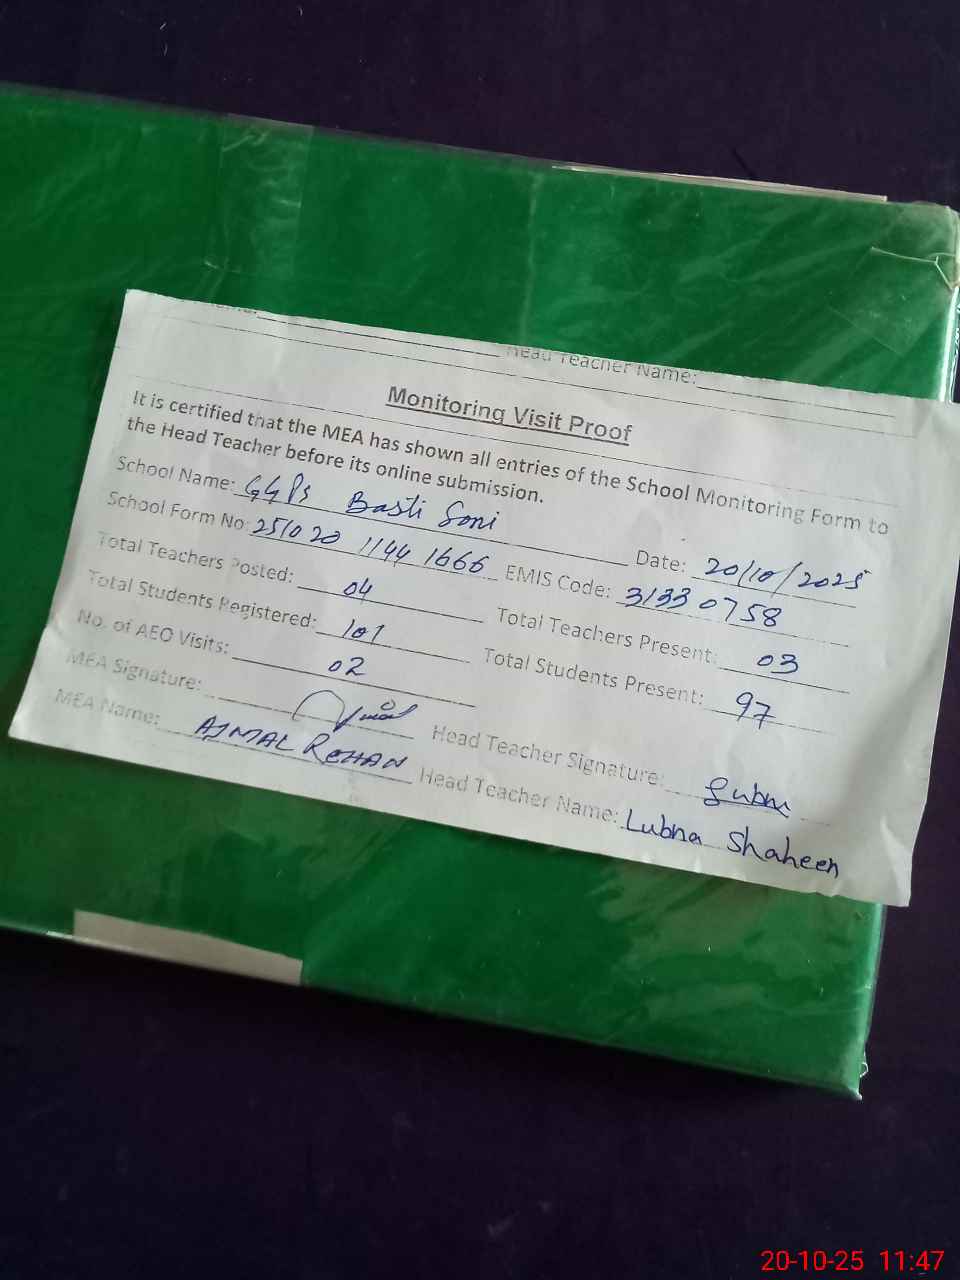 Head Teacher Name:
Monitoring Visit Proof
It is certified that the MEA has shown all entries of the School Monitoring Form to
the Head Teacher before its online submission.
School Name: GGPS Basti Soni Date: 20/10/2025
School Form No: 251020 1144 1666 EMIS Code: 3133 0758
Total Teachers Posted: 04 Total Teachers Present: 03
Total Students Registered: 101 Total Students Present: 97
No. of AEO Visits: 02
MEA Signature: Head Teacher Signature: Lubna
MEA Name: AJMAL REHAN Head Teacher Name: Lubna Shaheen
20-10-25 11:47